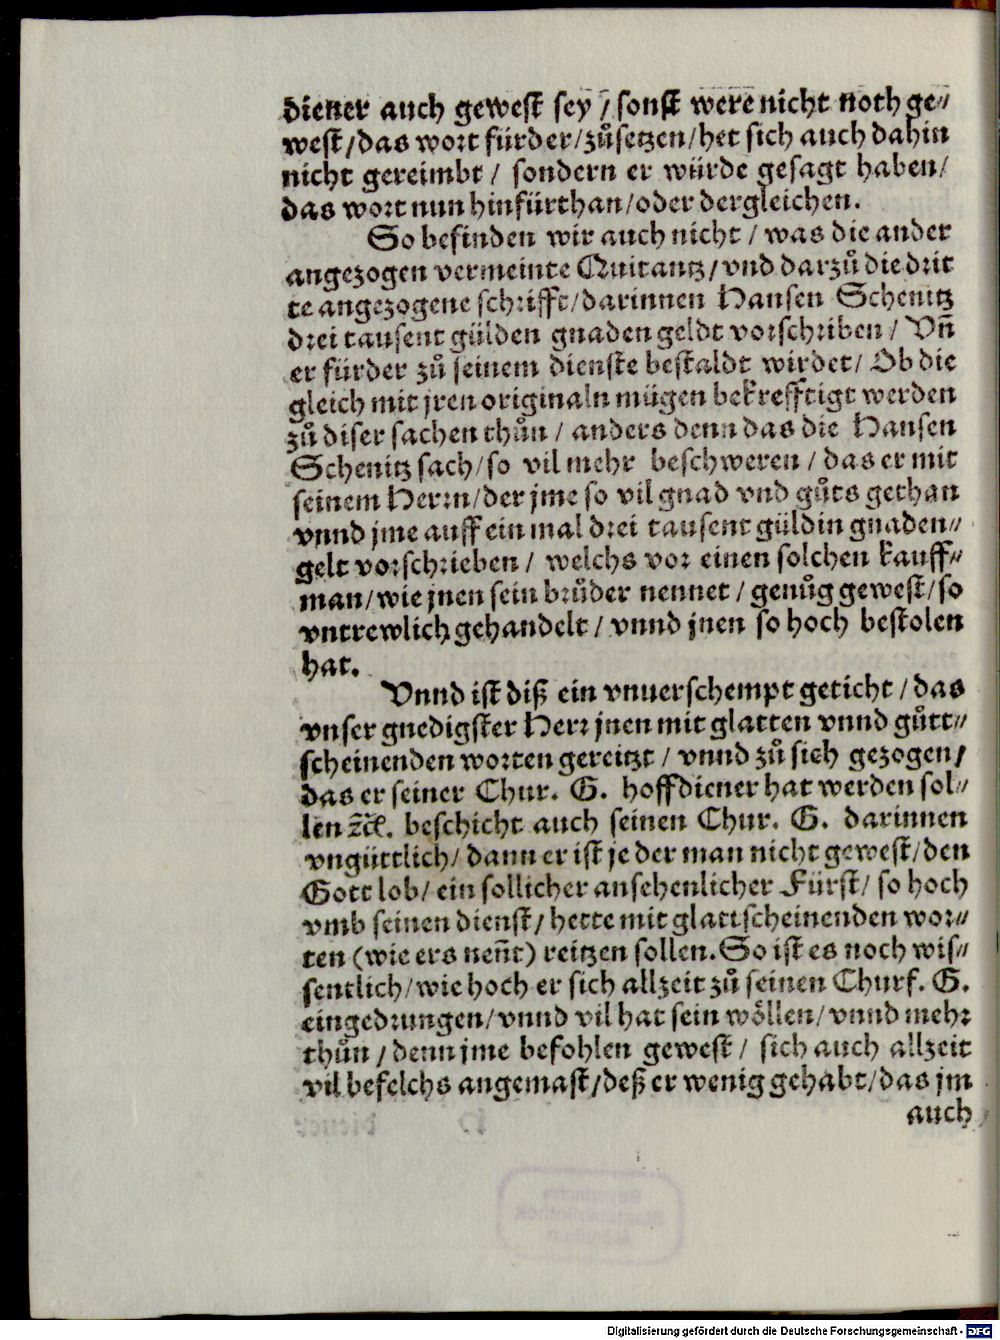 diener auch gewest sey / sonst were nicht noth ge⸗
west / das wort fürder / zůsetzen / het sich auch dahin
nicht gereimbt / sondern er würde gesagt haben /
das wort nun hinfürthan / oder dergleichen.
So befinden wir auch nicht / was die ander
angezogen vermeinte Quitantz / vnd darzů die drit
te angezogene schrifft / darinnen Hansen Schenitz
drei tausent gülden gnaden geldt vorschriben / Vñ
er fürder zů seinem dienste bestaldt wirdet / Ob die
gleich mit jren originaln mügen bekrefftigt werden
zů diser sachen thůn / anders denn das die Hansen
Schenitz sach / so vil mehr beschweren / das er mit
seinem Herrn / der jme so vil gnad vnd gůts gethan
vnnd jme auff ein mal drei tausent güldin gnaden⸗
gelt vorschrieben / welchs vor einen solchen kauff⸗
man / wie jnen sein brůder nennet / genůg gewest / so
vntrewlich gehandelt / vnnd jnen so hoch bestolen
hat.
Vnnd ist diß ein vnuerschempt geticht / das
vnser gnedigster Herr jnen mit glatten vnnd gůtt⸗
scheinenden worten gereitzt / vnnd zů sich gezogen /
das er seiner Chur. G. hoffdiener hat werden sol⸗
len ꝛc̃. beschicht auch seinen Chur. G. darinnen
vngüttlich / dann er ist je der man nicht gewest / den
Gott lob / ein sollicher ansehenlicher Fürst / so hoch
vmb seinen dienst / hette mit glattscheinenden wor⸗
ten (wie ers neñt) reitzen sollen. So ist es noch wis⸗
sentlich / wie hoch er sich allzeit zů seinen Churf. G.
eingedrungen / vnnd vil hat sein wöllen / vnnd mehr
thůn / denn jme befohlen gewest / sich auch allzeit
vil befelchs angemast / deß er wenig gehabt / das jm
auch
Digitalisierung gefördert durch die Deutsche Forschungsgemeinschaft - DFG